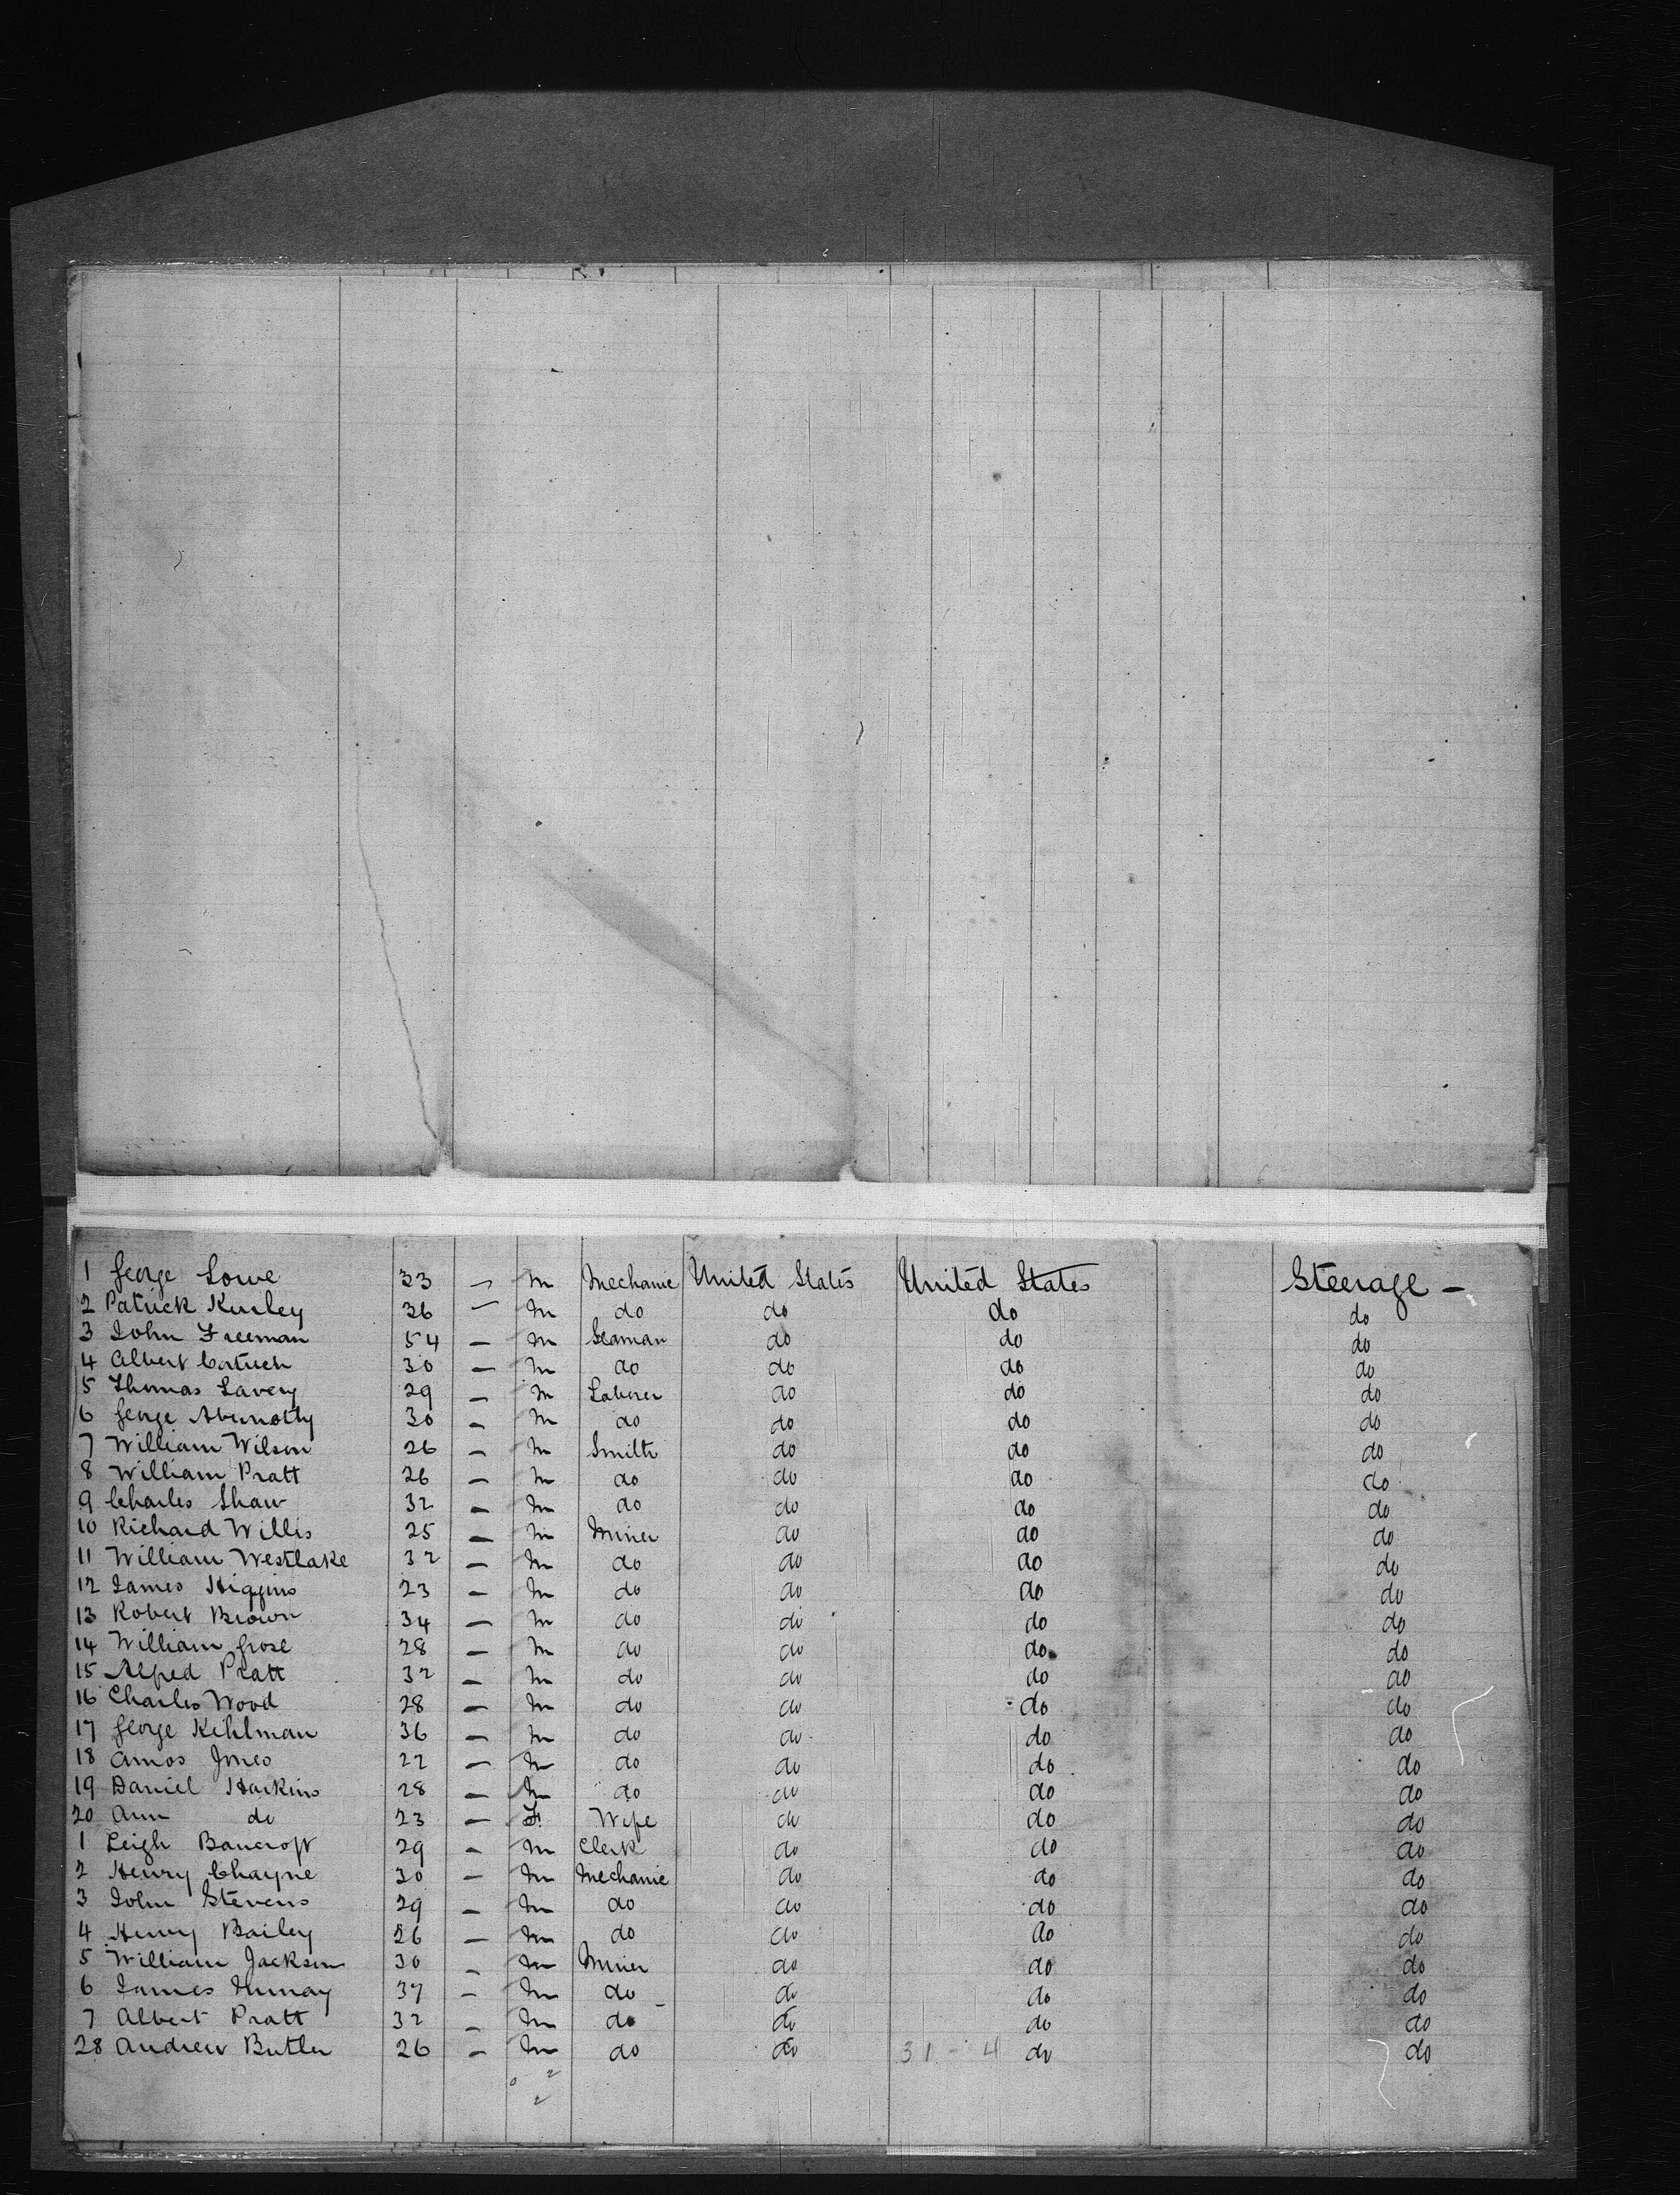 1 George Lowe 33 – M Mechanic United States United States Steerage –
2 Patrick Kurley 36 – M do do do do
3 John Freeman 54 – M Seaman do do do
4 Albert 30 – M do do do do
5 Thomas Lavery 29 – M Laborer do do do
6 George 30 – M do do do do
7 William Wilson 26 – M Smith do do do
8 William Pratt 26 – M do do do do
9 Charles Shaw 32 – M do do do do
10 Richard Willis 25 – M Miner do do do
11 William Westlake 32 – M do do do do
12 James Higgins 23 – M do do do do
13 Robert Brown 34 – M do do do do
14 William Grose 28 – M do do do do
15 Alfred Pratt 32 – M do do do do
16 Charles Wood 28 – M do do do do
17 George Kihlman 36 – M do do do do
18 Amos Jones 22 – M do do do do
19 Daniel Harkins 28 – M do do do do
20 Ann do 23 – F. Wife do do do
1 Leigh Bancroft 29 – M Clerk do do do
2 Henry Chayne 30 – M Mechanic do do do
3 John Stevens 29 – M do do do do
4 Henry Bailey 26 – M do do do do
5 William Jackson 30 – M Miner do do do
6 James 37 – M do do do do
7 Albert Pratt 32 – M do do do do
28 Andrew Butler 26 – M do do 31 - 4 do do